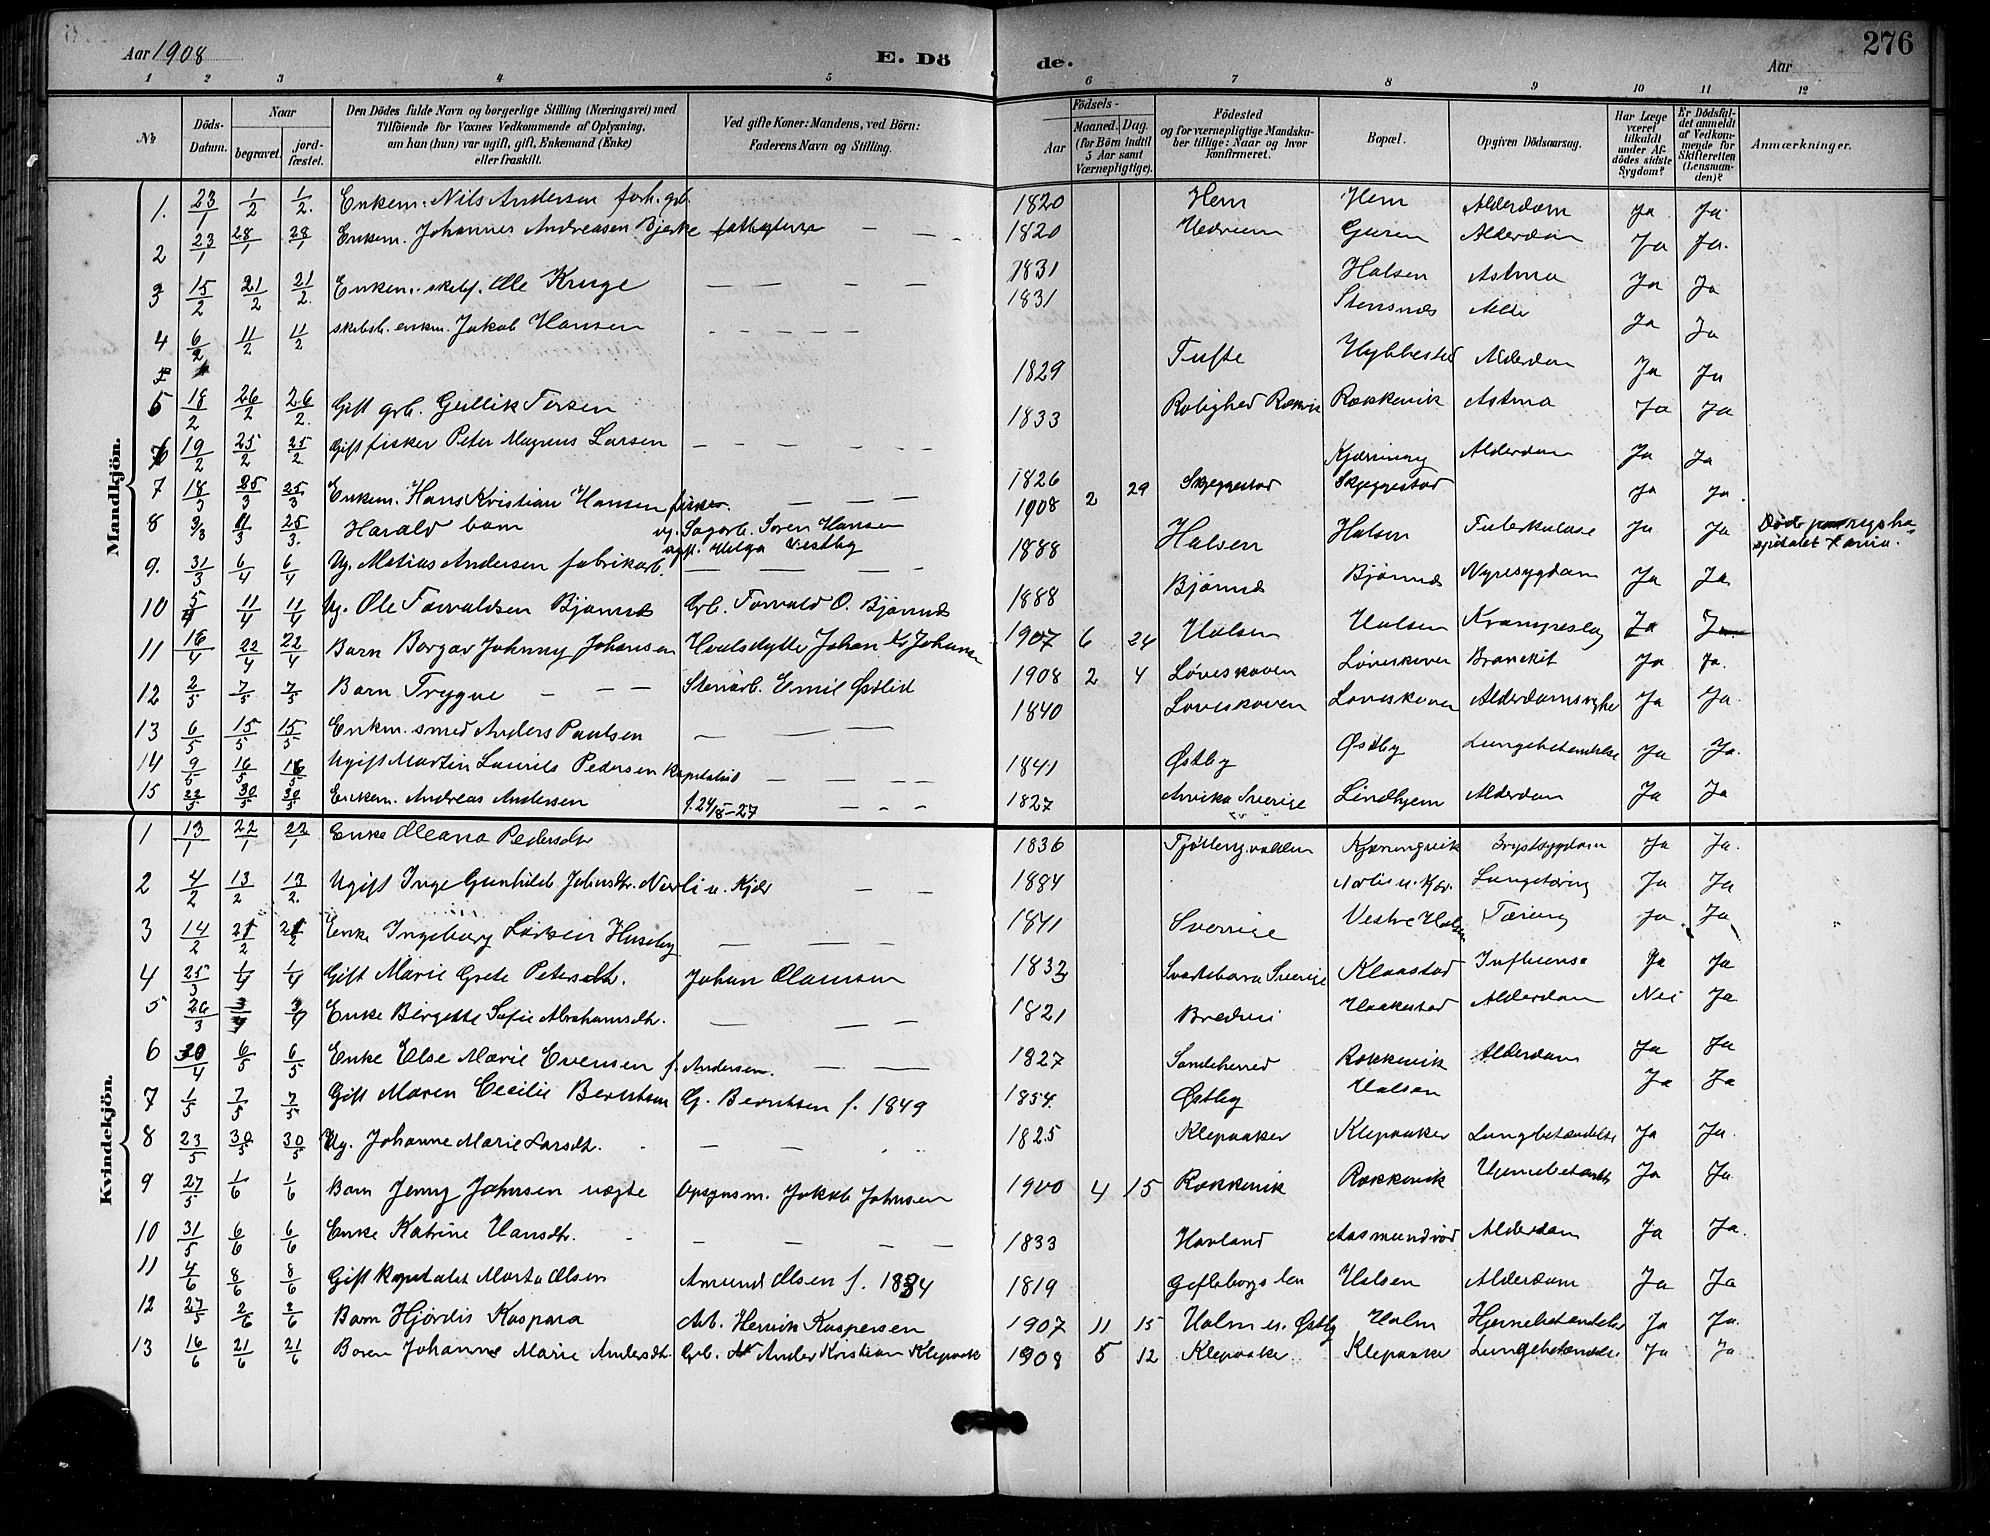 Aar 1908
E. Dö
de.
Aar
276
1 2 3 4 5 6 7 8 9 10 11 12
№
Döds-
Datum.
Naar
begravet.
jord-
fæstet.
Den Dödes fulde Navn og borgerlige Stilling (Næringsvei) med
Tilföiende for Voxnes Vedkommende af Oplysning,
om han (hun) var ugift, gift, Enkemand (Enke)
eller fraskilt.
Ved gifte Koner: Mandens, ved Börn:
Faderens Navn og Stilling.
Födsels-
Aar
Maaned.
Dag.
(for Börn indtil
5 Aar samt
Værnepligtige).
Födested
og for værnepligtige Mandska-
ber tillige: Naar og hvor
konfirmeret.
Bopæl.
Opgiven Dödsaarsag.
Har Læge
været
tilkaldt
under Af-
dödes sidste
Sygdom?
Er Dödsfal-
det anmeldt
af Vedkom-
mende for
Skifteretten
(Lensman-
den)?
Anmærkninger.
Mandkjön.
1. 23/1 1/2 1/2. Enkem. Nils Andersen forh. grb. 1820 Hem Hem Alderdom Ja Ja
2 23/1 28/1 28/1 Enkem. Johannes Andreasen Bjerke 1820 Hedrum Guren Alderdom Ja Ja.
3 15/2 21/2 21/2. Enkem. skibsf. Ole Kruge — — — — 1831 Halsen Astma Ja Ja
4 6/2 11/2 11/2 skibstr. enkm. Jakob Hansen - - - - - 1831 Stensnæs Alde Ja Ja
5 18/2 26/2 26/2. Gift grb. Gullik Torsen 1829 Tufte Alderdom Ja Ja
6 19/2 25/2 25/2. Gift fisker Peter Magnus Larsen 1833 Rolighed Rækkevik Astma Ja Ja
7 18/3 25/3 25/3 Enkem. Hans Kristian Hansen fisker. — — — 1826 Alderdom Ja Ja
8 3/3 11/3 25/3. Harald barn Sagarb. Soren Hansen 1908 2 29 Skjeggestad Skjeggestad Ja Ja.
ugft. Helga Vestby
9. 31/3 6/4 6/4 Ug. Matias Andersen fabrikarb. — — — 1888 Halsen Halsen Tuberkulose Ja Ja
10 5/4 11/4 11/4 Ug. Ole Torvaldsen Bjønnes Grb. Torvald O. Bjønnes 1888 Bjønnes Bjønnes Nyresygdom Ja Ja
11 16/4 22/4 22/4 Barn Borgar Johnny Johansen Johan 1907 6 24 Halsen Halsen Krampeslag Ja Ja
12 2/5 7/5 7/5 Barn Trygve — — — Stenarb. Emil Østlid 1908 2 4 Løveskoven Løveskoven Ja Ja.
13 6/5 15/5 15/5 Enkm. smed Anders Paulsen — — — 1840 Løveskoven Løveskoven Ja Ja
14 9/5 16/5 16/5 Ugift Martin Laurits Pedersen Kapitalist — — — 1841 Østby Østby Lungebetændelse Ja Ja.
15 22/5 30/5 30/5 Enkem. Andreas Andersen f. 24/8-27 - - - 1827 Arvika Sverige Lindhjem Alderdom Ja Ja
Kvindekjön.
1 13/1 22/1 22/1 Enke Oleana Pedersdtr 1836 Kjærringvik Brystsygdom Ja Ja.
2 4/2 13/2 13/2. Ugift Inge Gunhilde Johnsdtr. Nordli u. Kjær — — 1884 Lungetæring Ja Ja
3 14/2 21/2 21/2 Enke Ingeborg Larsen Huseby — — — 1841 Sverrige Vestre Halsen Tæring Ja Ja
4 25/3 1/4 1/4 Gift Marie Grete Petersdtr. Johan Olausen 1833 Svarteborg Sverige Klaastad Influensa Ja Ja
5 26/3 3/4 3/4 Enke Birgette Sofie Abrahamsdtr. — — — 1821 Bredvei Haakestad Alderdom Nei Ja
6 30/4 6/5 6/5 Enke Else Marie Evensen f. Andersen. — — 1827 Sandeherred Rækkevik Alderdom Ja Ja
7 1/5 7/5 7/5 Gift Maren Cecilie Berntsen G. Berntsen f. 1849 1854 Østby Halsen Ja Ja
8 23/5 30/5 30/5 Ug. Johanne Marie Larsdtr. — — 1825 Klepaaker Klepaaker Lungbetændelse Ja Ja.
9 27/5 1/6 1/6 Barn Jenny Johnsen uægte Opsynsm. Jakob Johnsen 1900 4 15 Rækkevik Rækkevik Ja Ja.
10 31/5 6/6 6/6 Enke Katrine Hansdtr. — — — — 1833 Havland Aasmundrød Alderdom Ja Ja.
11 4/6 8/6 8/6 Gift Kapitalist Marta Olsen Amund Olsen f. 1834 1819 Gefleborgs len Halsen Alderdom Ja Ja
12 27/5 2/6 2/6 Barn Hjørdis Kaspara Arb. Henrik Kaspersen 1907 11 15 Holm u. Østby Holm Hjernebetændelse Ja Ja.
13 16/6 21/6 21/6 Barn Johanne Marie Andersdtr. Grb. Anders Kristian Klepaak 1908 5 12 Klepaaker Klepaaker Lungebetændelse Ja Ja